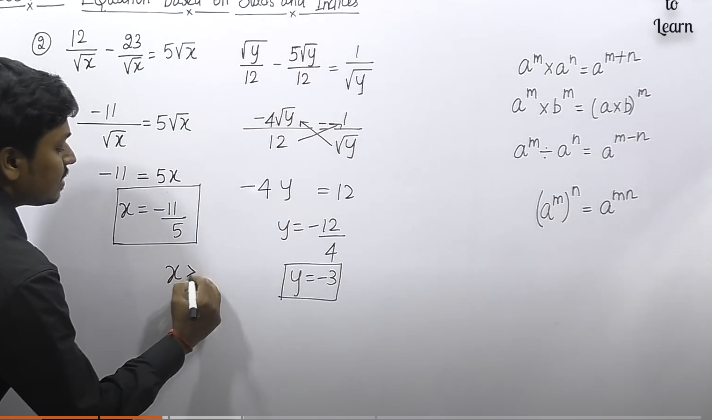 Equation Based on Surds and Indices
to
Learn
② 12/√x - 23/√x = 5√x
-11/√x = 5√x
-11 = 5x
x = -11/5
x >
√y/12 - 5√y/12 = 1/√y
-4√y/12 = 1/√y
-4y = 12
y = -12/4
y = -3
aᵐ x aⁿ = aᵐ⁺ⁿ
aᵐ x bᵐ = (axb)ᵐ
aᵐ ÷ aⁿ = aᵐ⁻ⁿ
(aᵐ)ⁿ = aᵐⁿ